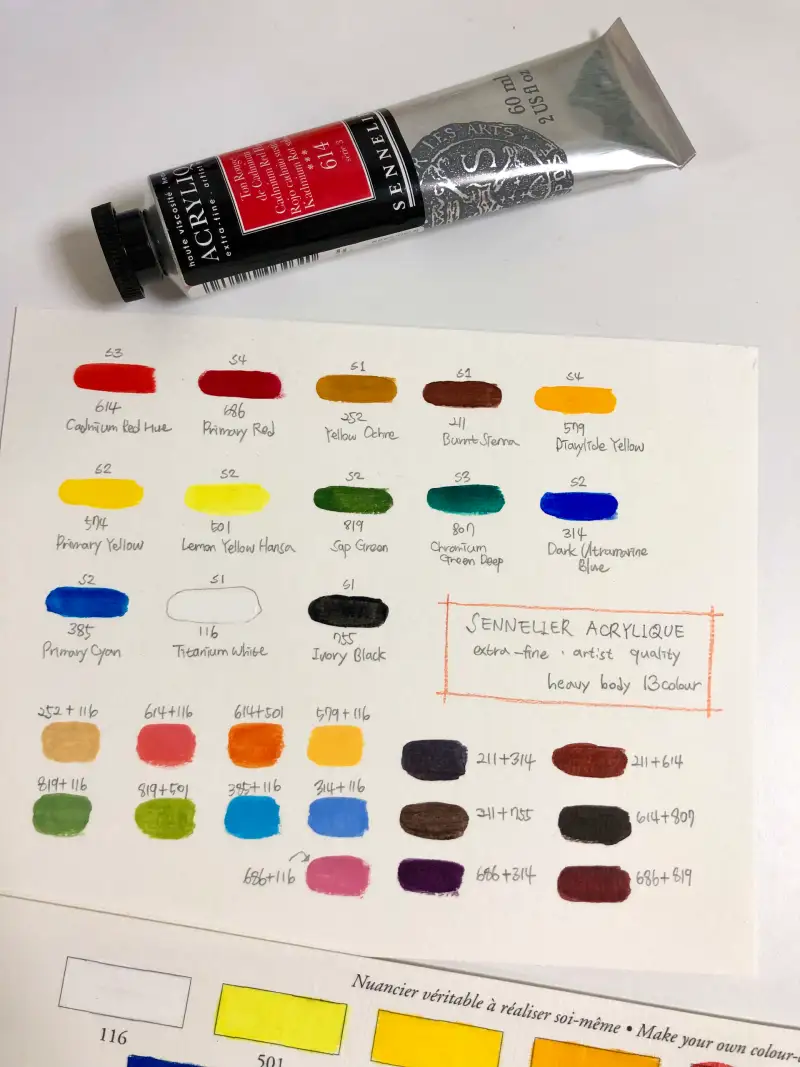 haute viscosité
ACRYLIQ
extra-fine . artis
Ton Rouge
de Cadmium
Cadmium Red H
Rojo cadmio
Kadmium Rot
***
614
série 3
SENNELI
LES ARTS
60 ml
2 US fl oz
S3 S4 S1 S1 S4
614 686 252 211 579
Cadmium Red Hue Primary Red Yellow Ochre Burnt Sienna Diarylide Yellow
S2 S2 S2 S3 S2
574 501 819 807 314
Primary Yellow Lemon Yellow Hansa Sap Green Chromium Green Deep Dark Ultramarine Blue
S2 S1 S1
385 116 755
Primary Cyan Titanium White Ivory Black
SENNELIER ACRYLIQUE
extra-fine . artist quality
heavy body 13colour
252+116 614+116 614+501 579+116
211+314 211+614
819+116 819+501 385+116 314+116
211+755 614+807
686+116 686+314 686+819
Nuancier véritable à réaliser soi-même • Make your own colour-
116
501